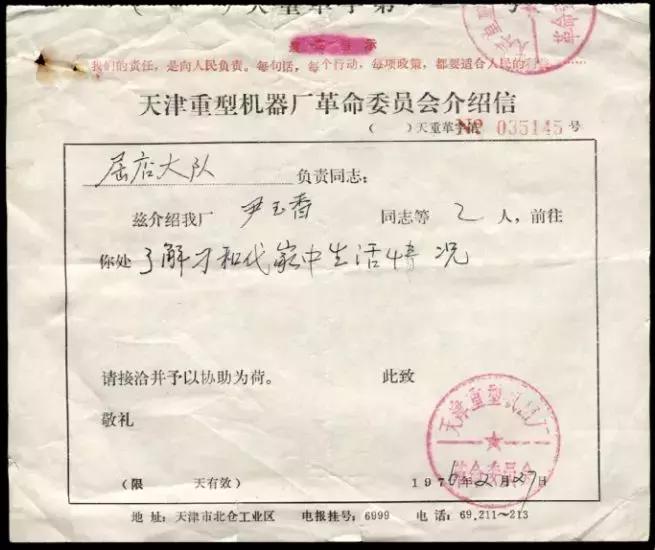 天重革字第 号
我们的责任，是向人民负责。每句话，每个行动，每项政策，都要适合人民的利
天津重型机器厂革命委员会介绍信
( )天重革字第 № 035145 号
屈店大队 负责同志：
兹介绍我厂 尹玉香 同志等 2 人，前往
你处了解刁和代家中生活情况
请接洽并予以协助为荷。 此致
敬礼
天津重型机器厂
革命委员会
(限 天有效) 1976年2月27日
地 址：天津市北仓工业区 电报挂号：6999 电 话：69.211—213